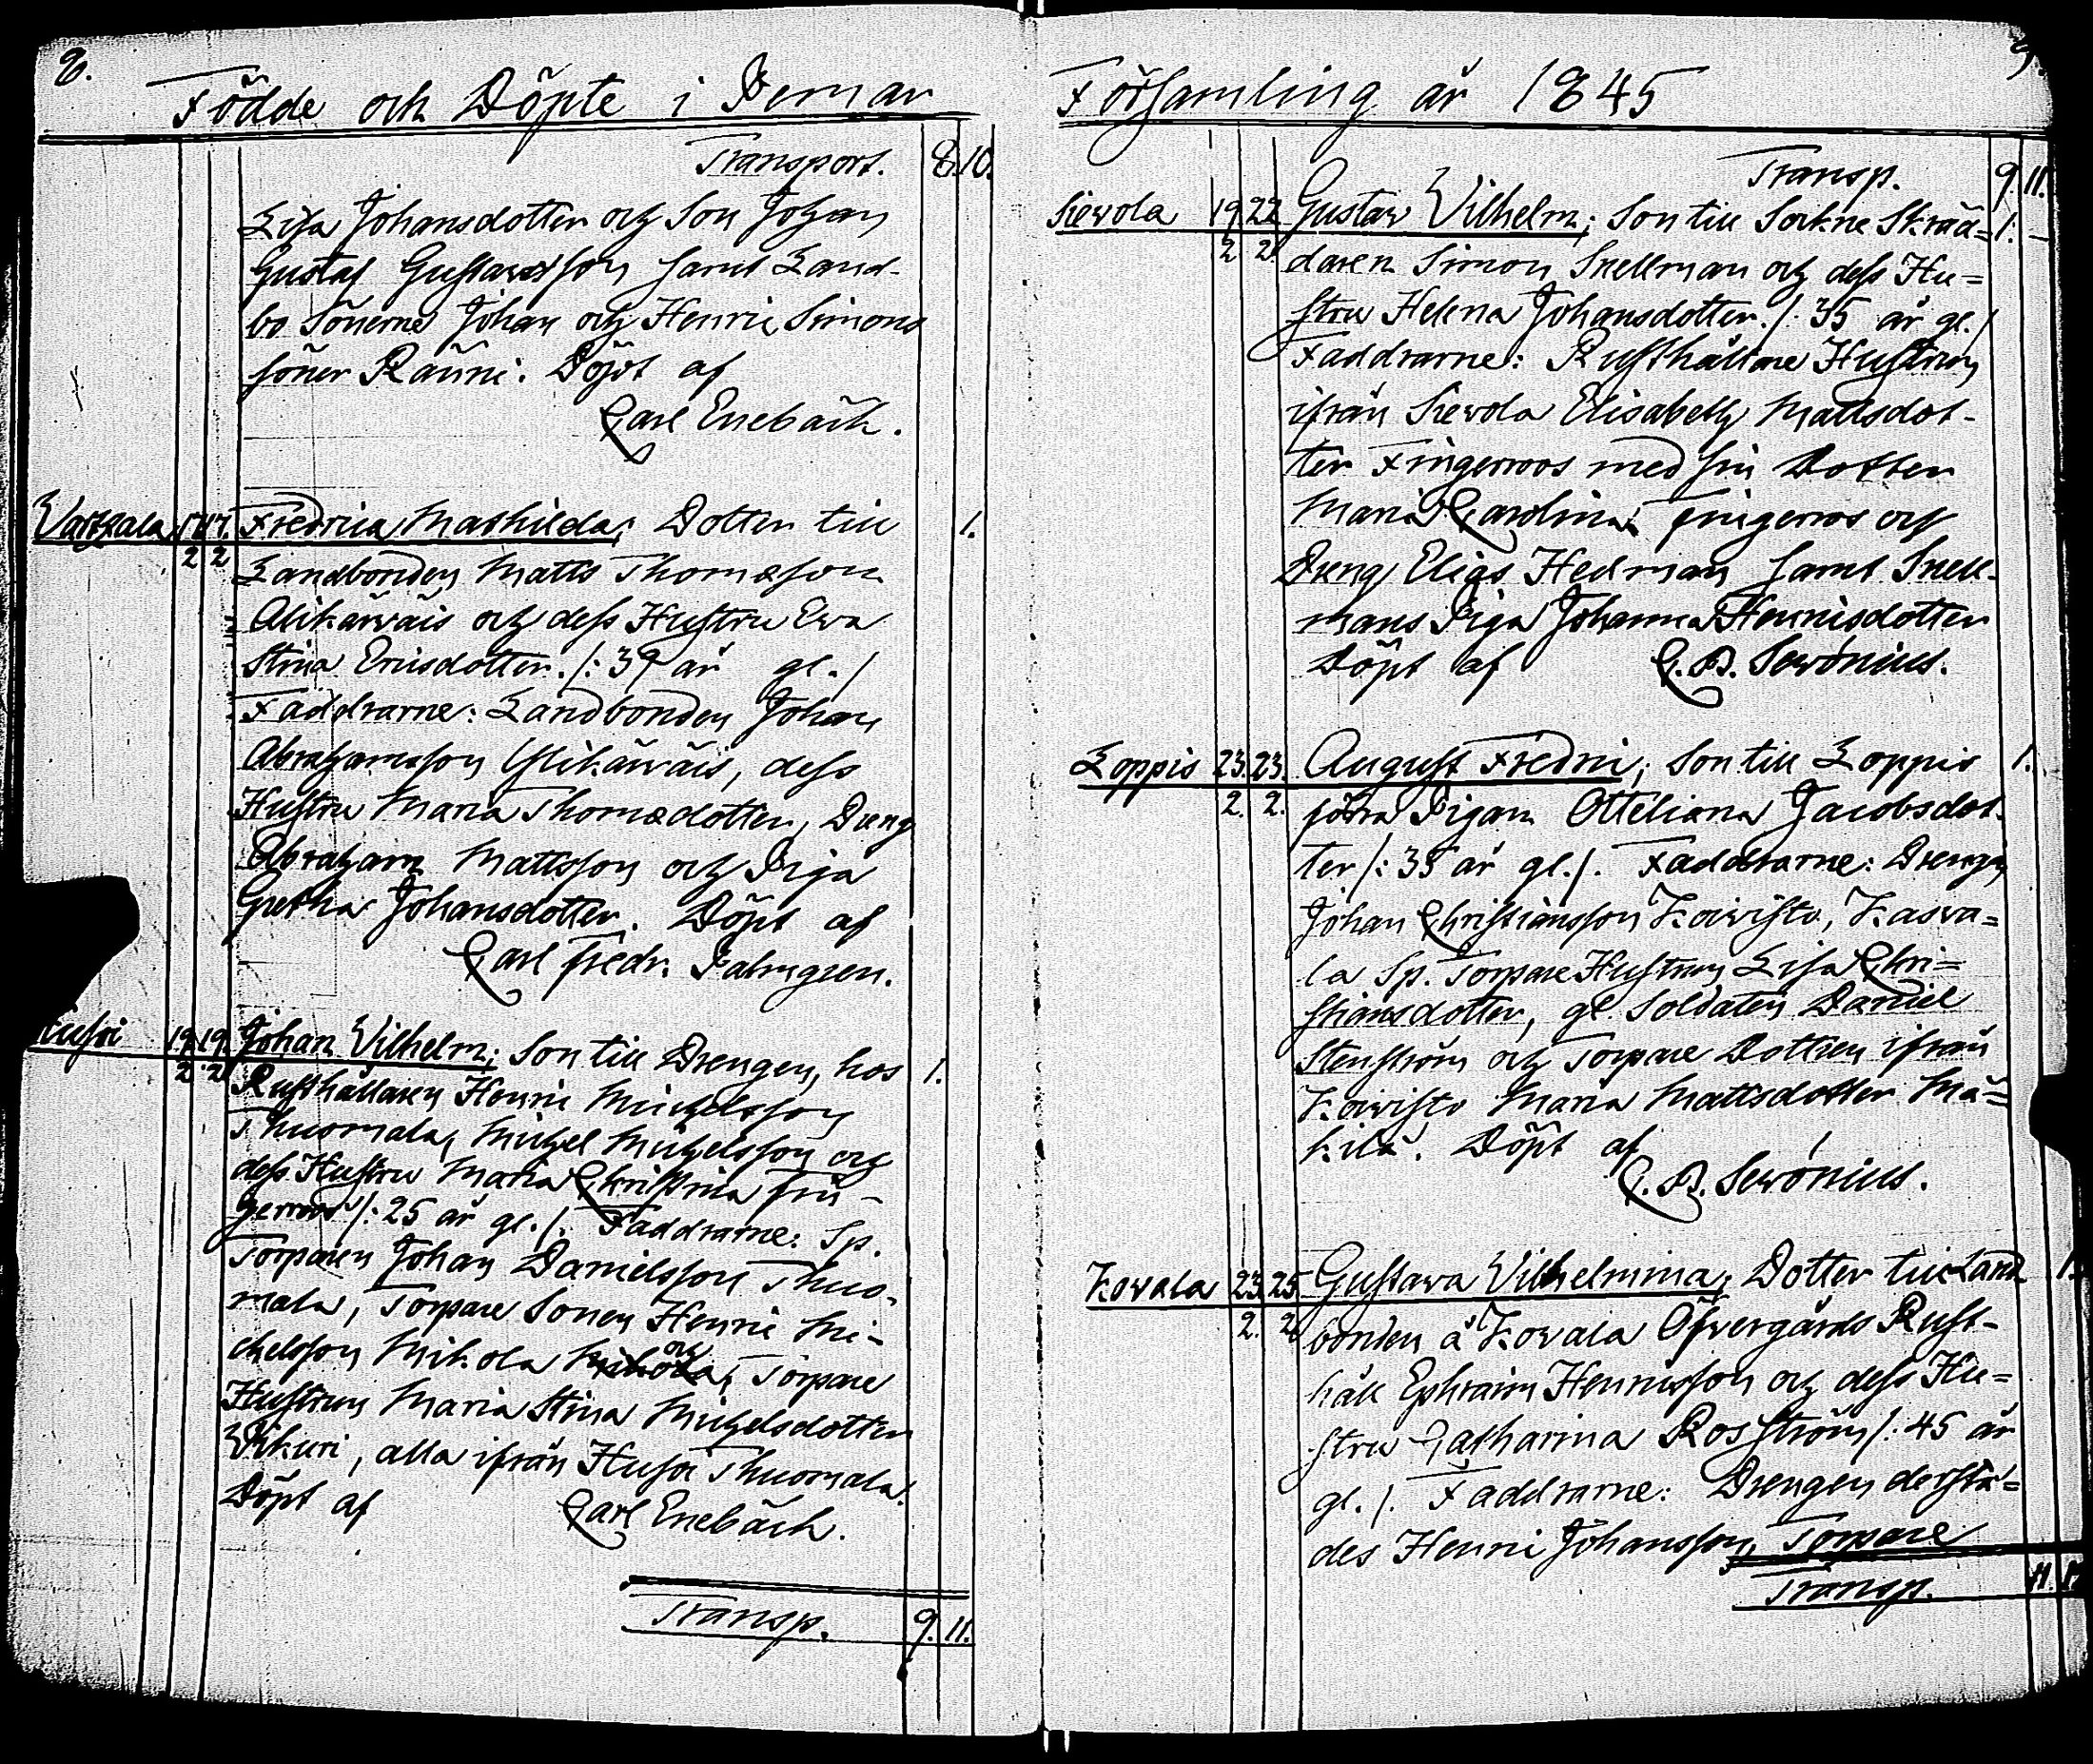 8.
Födde och Döpte i Pemar
Transport. 8. 10.
Lisa Johansdotter och Son Johan
Gustaf Gustavsson samt Land-
bo Sönerne Johan och Henric Simons
söner Räuni. Döpt af
Carl Enebäck.
Wartsala 17. 17. Fredrica Mathilda; Dotter till 1.
2 2 Landbonden Matts Thomæson
Alikärväis och dess Hustru Ewa
Stina Ericsdotter. /: 39 år gl. /
Faddrarne: Landbonden Johan
Abrahamsson Ylikärväis, dess
Hustru Maria Thomædotter, Dreng
Abraham Mattsson och Piga
Gretha Johansdotter. Döpt af
Carl Fredr. Palmgren.
19. 19. Johan Vilhelm; Son till Drengen, hos 1.
2 2 Rusthållaren Henric Michelsson
Thuomala, Michel Michelsson och
dess Hustru Maria Christina Fin-
gerroos /: 25 år gl. /. Faddrarne: Sp.
Torparen Johan Danielsson Thuo-
mala, Torpare Sonen Henric Mi-
chelsson Mikola och Torpare
Hustrun Maria Stina Michelsdotter
alla ifrån Husoi Thuomala.
Döpt af Carl Enebäck.
Transp. 9. 11.
9.
Församling år 1845
Transp. 9. 11.
Siewola 19 22 Gustav Vilhelm; Son till Sockne Skräd= 1. –
2 2 daren Simon Snellman och dess Hu=
stru Helena Johansdotter. /: 35 år gl. /
Faddrarne: Rusthållare Hustrun
ifrån Siewola Elisabeth Mattsdot-
ter Fingerroos med sin Dotter
Maria Carolina Fingerroos och
Dreng Elias Hedman samt Snell-
mans Piga Johanna Henricsdotter
Döpt af C. B. Serönius.
Loppis 23. 23. August Fredric; Son till Loppis 1.
2. 2. förra Pigan Otteliana Jacobsdot-
ter /: 35 år gl. /. Faddrarne: Drengen
Johan Christiansson Koivisto, Kasva=
la Sp. Torpare Hustrun Lisa Chri=
stiansdotter, gl. Soldaten Daniel
Stenström och Torpare Dottren ifrån
Koivisto Maria Mattsdotter Mä=
kilä. Döpt af
C. B. Serönius.
Kovala 23. 25. Gustava Vilhelmina; Dotter till Land 1.
2. 2. bonden å Kovala Öfvergårds Rust-
håll Ephraim Henricsson och dess Hu=
stru Catharina Rosström /: 45 år
gl. /. Faddrarne: Drengen derstä=
des Henric Johansson, Torpare
Transp. 11.